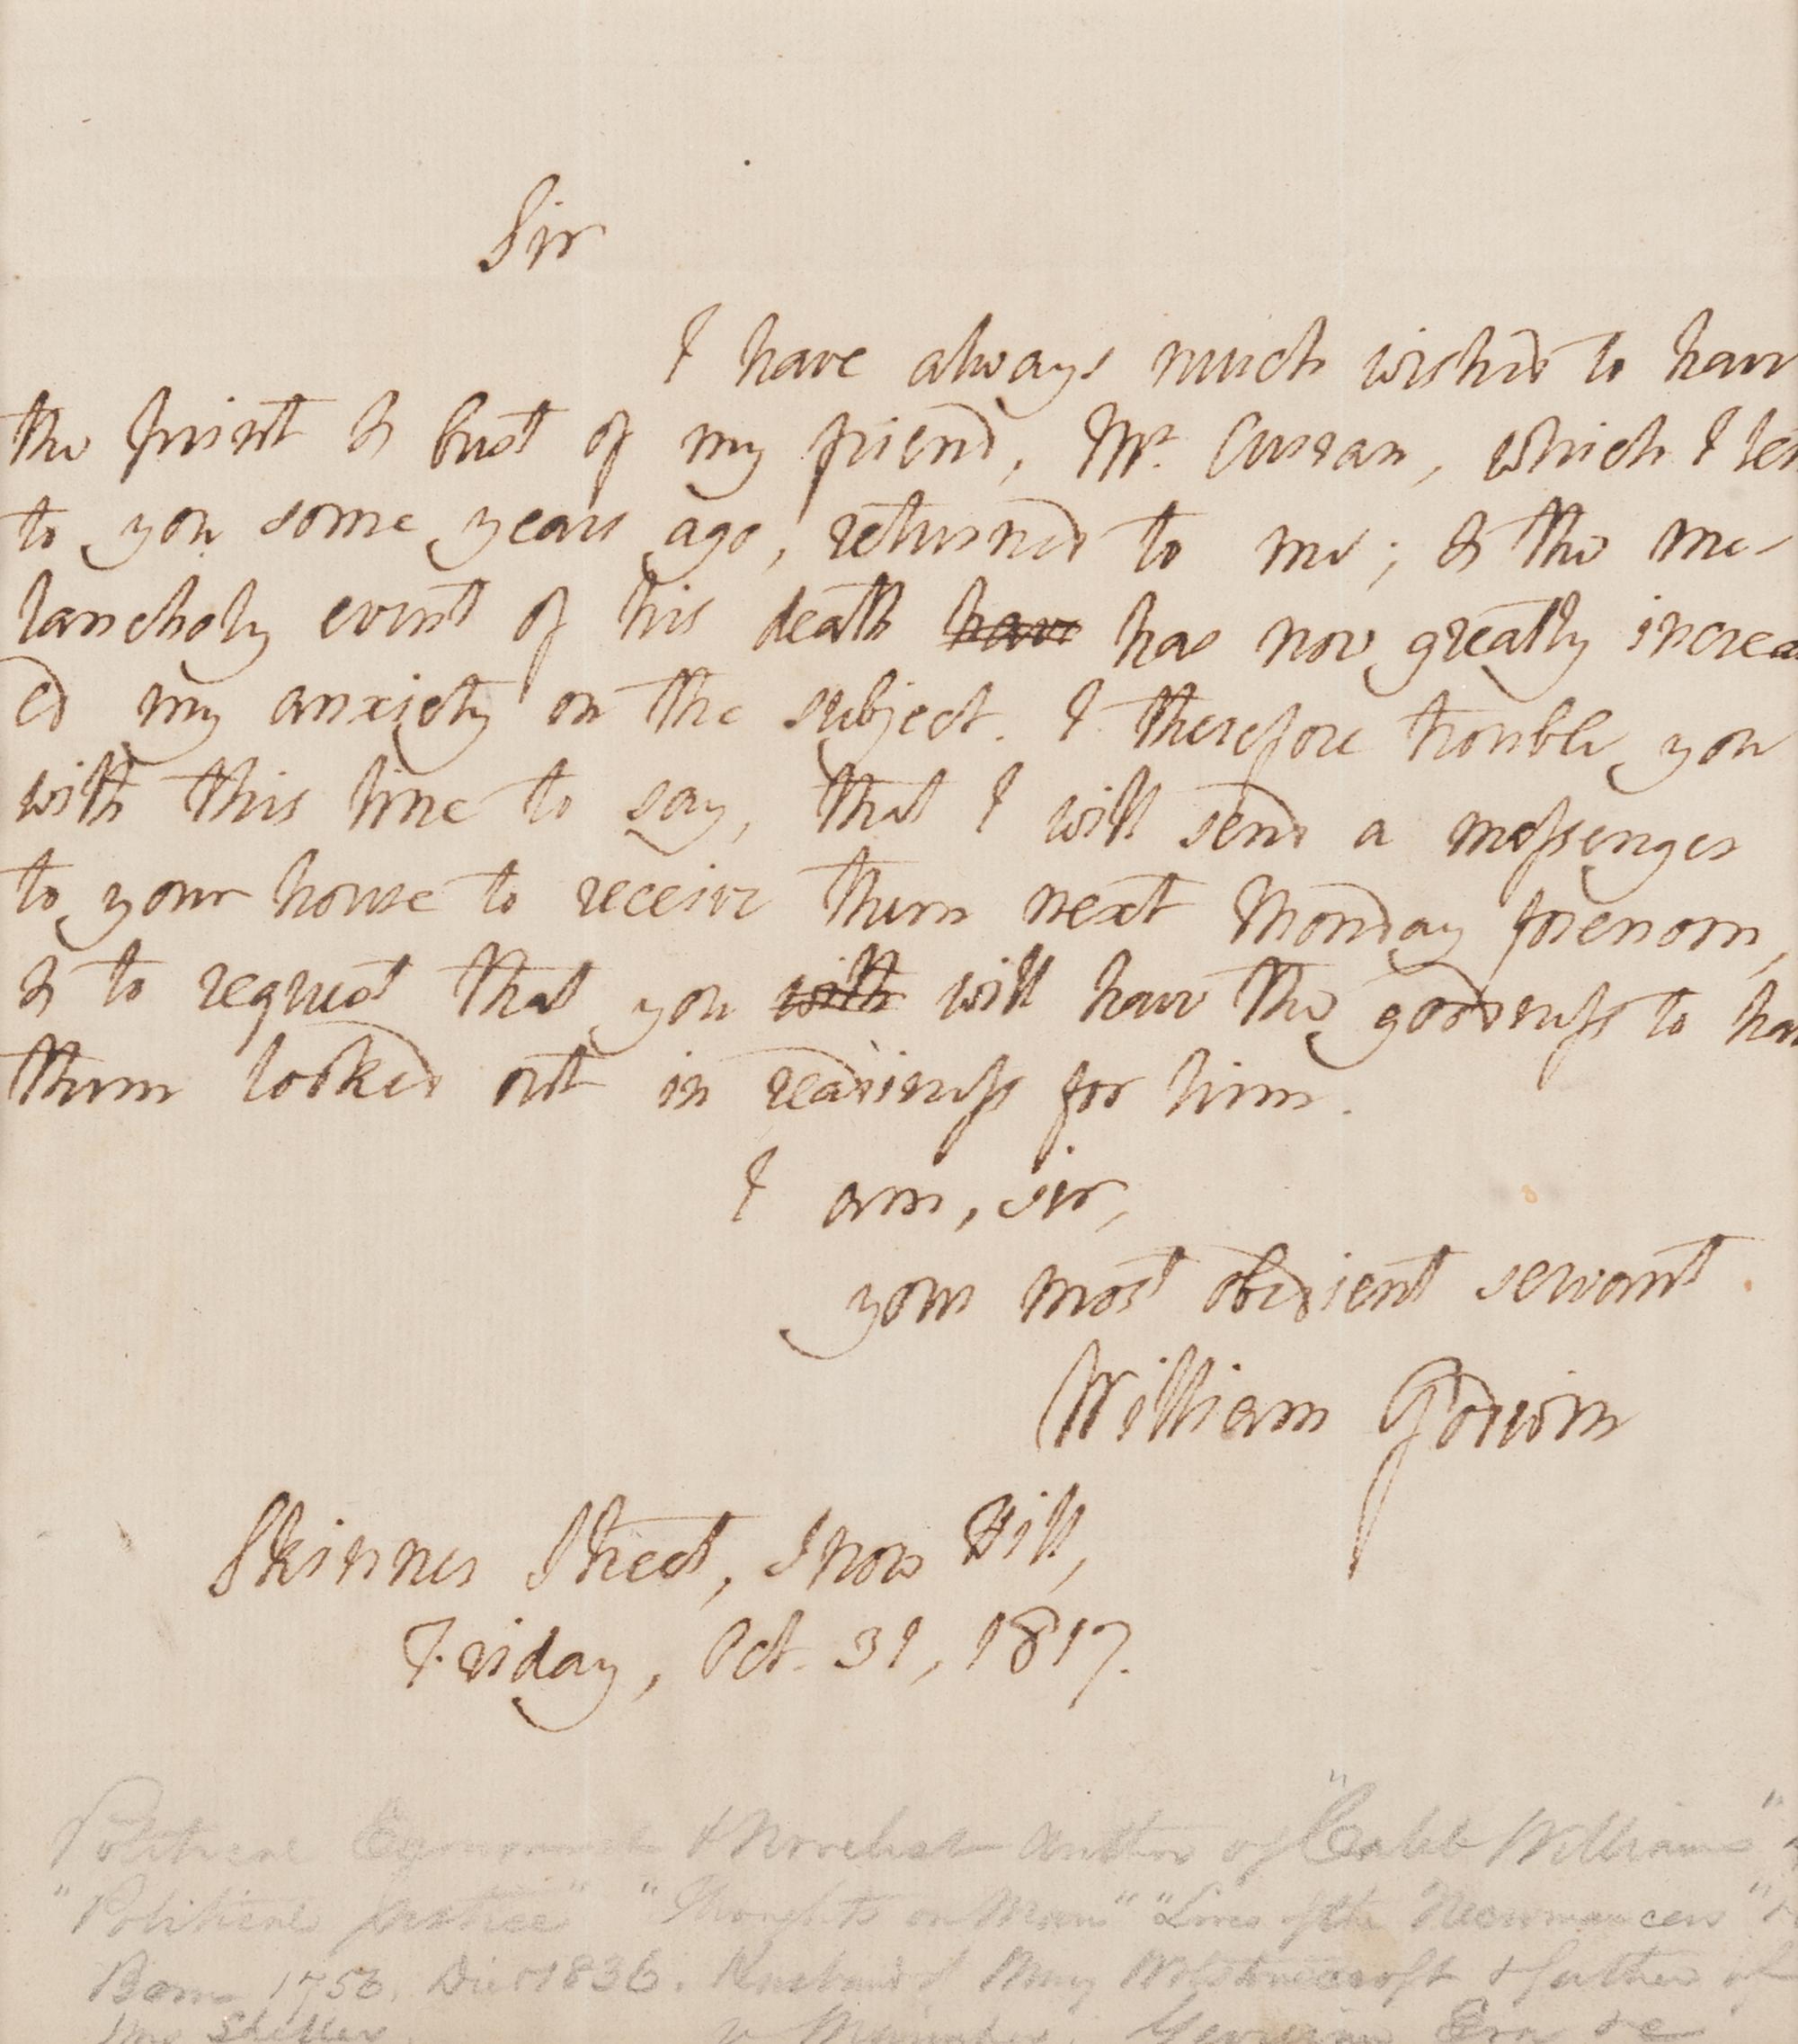 Sir
I have always much wished to have
the print & bust of my friend, Mr. Curran, which I len
to you some years ago, returned to me; & the me-
lancholy event of his death have has now greatly increas
ed my anxiety on the subject. I therefore trouble you
with this line to say, that I will send a messenger
to your house to receive them next Monday forenoon,
& to request that you with will have the goodness to hav
them looked out in readiness for him.
I am, sir,
your most obedient servant
William Godwin
Skinner Street, Snow Hill,
Friday, Oct. 31, 1817.
Political Economist & Novelist Author of "Caleb Williams"
"Political Justice" "Thoughts on Man" "Lives of the Necromancers"
Born 1756. Died 1836. Husband of Mary Wolstonecroft & father of
Mrs Shelley. Georgian Era &c